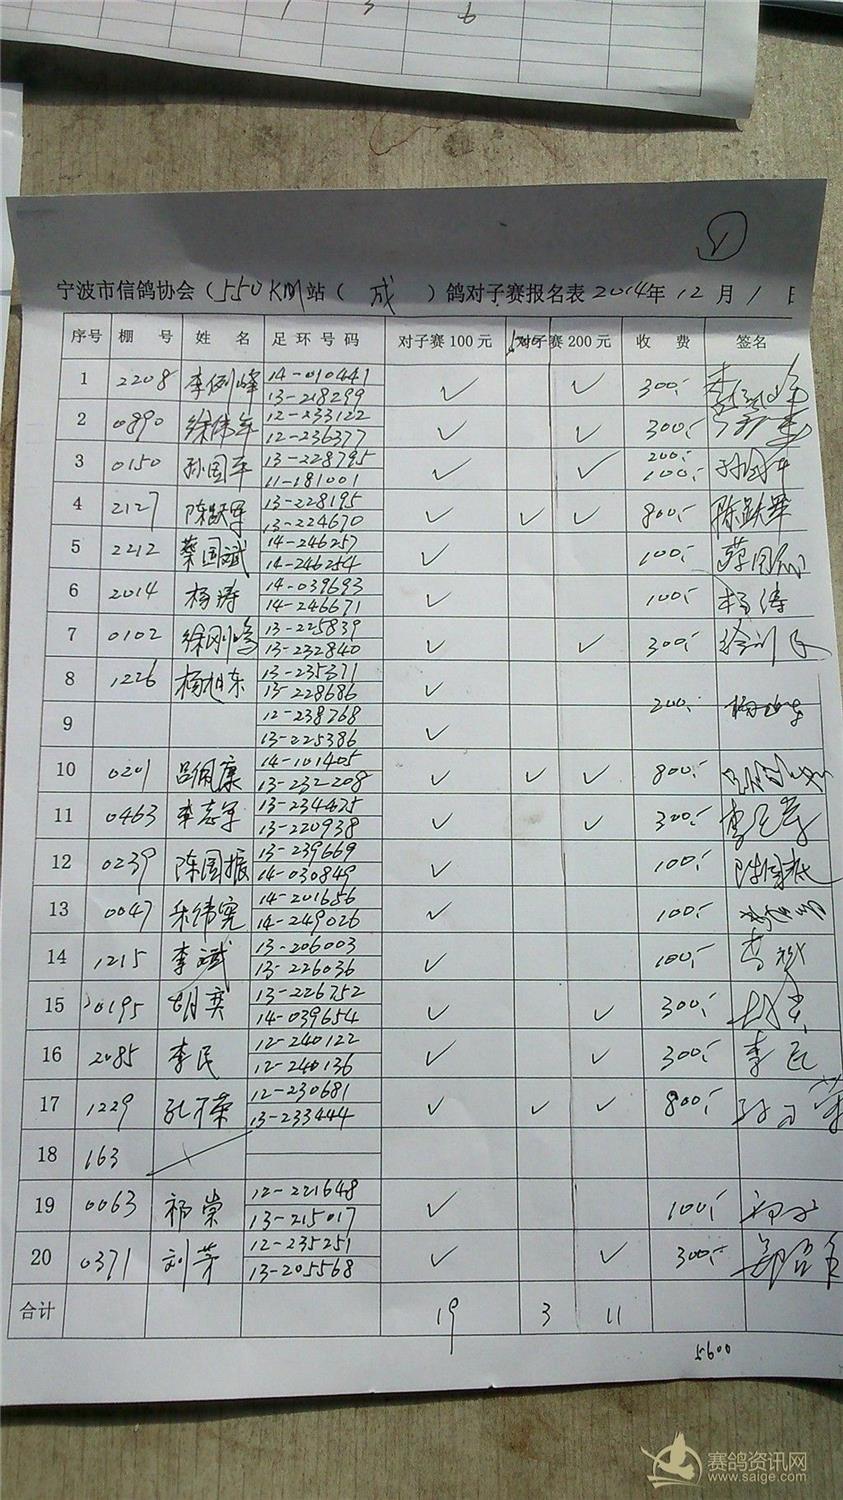 1 3 6
1
宁波市信鸽协会（550KM站（ 成 ）鸽对子赛报名表 2014年 12 月 1 日
序号 棚 号 姓 名 足 环 号 码 对子赛 100 元 500 对子赛 200 元 收 费 签名
1 2208 李例峰 14-010441 ✓ ✓ 300.-
13-218299
2 0890 徐伟军 12-233122 ✓ ✓ 300.-
12-236377
3 0150 孙国军 13-228795 ✓ ✓ 200.- 孙国军
11-181001 100.-
4 2127 陈跃军 13-228195 ✓ ✓ ✓ 800.- 陈跃军
13-224670
5 2212 蔡国斌 14-246257 ✓ 100.- 蔡国斌
14-246254
6 2014 杨涛 14-039693 ✓ 100.- 杨涛
14-246671
7 0102 徐刚鸣 13-225839 ✓ ✓ 300.-
13-232840
8 1226 杨旭东 13-235371 ✓ 200.- 杨旭东
13-228686
9 12-238768 ✓
13-225386
10 0201 吕佩康 14-101405 ✓ ✓ ✓ 800.-
13-232208
11 0463 李志军 13-234675 ✓ ✓ 300.- 李志军
13-220938
12 0239 陈国振 13-239669 ✓ 100.- 陈国振
14-030849
13 0047 朱伟宪 14-201656 ✓ 100.-
14-249026
14 1215 李斌 13-206003 ✓ 100.- 李斌
13-226036
15 0195 胡奕 13-226752 ✓ ✓ 300.-
14-039654
16 2085 李民 12-240122 ✓ ✓ 300.- 李民
12-240136
17 1229 孔万荣 12-230681 ✓ ✓ ✓ 800.- 孔万荣
13-233444
18 163
19 0063 祁崇 12-221648 ✓ 100.-
13-215017
20 0371 刘芳 12-235251 ✓ ✓ 300.-
13-205568
合计 19 3 11
5600
赛鸽资讯网
www.saige.com